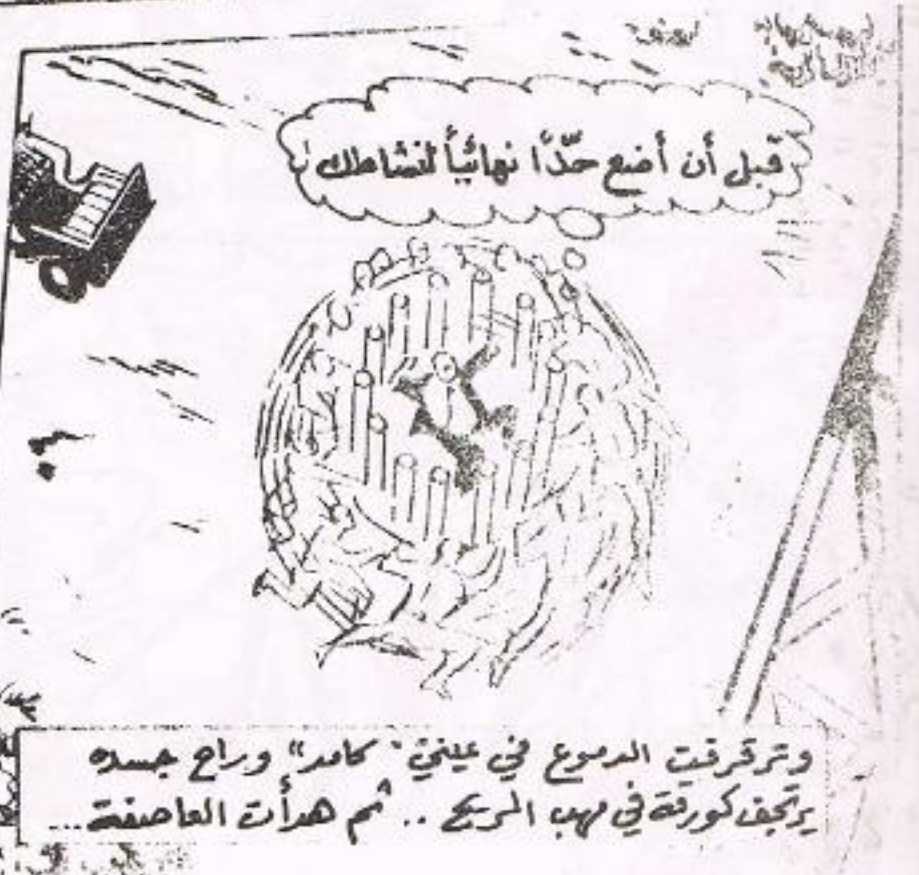 قبل أن أضع حدًّا نهائياً لنشاطك
وترقرقت الدموع في عيني "كامد" وراح جسده
يرتجف كورقة في مهب الريح .. ثم هدأت العاصفة ...